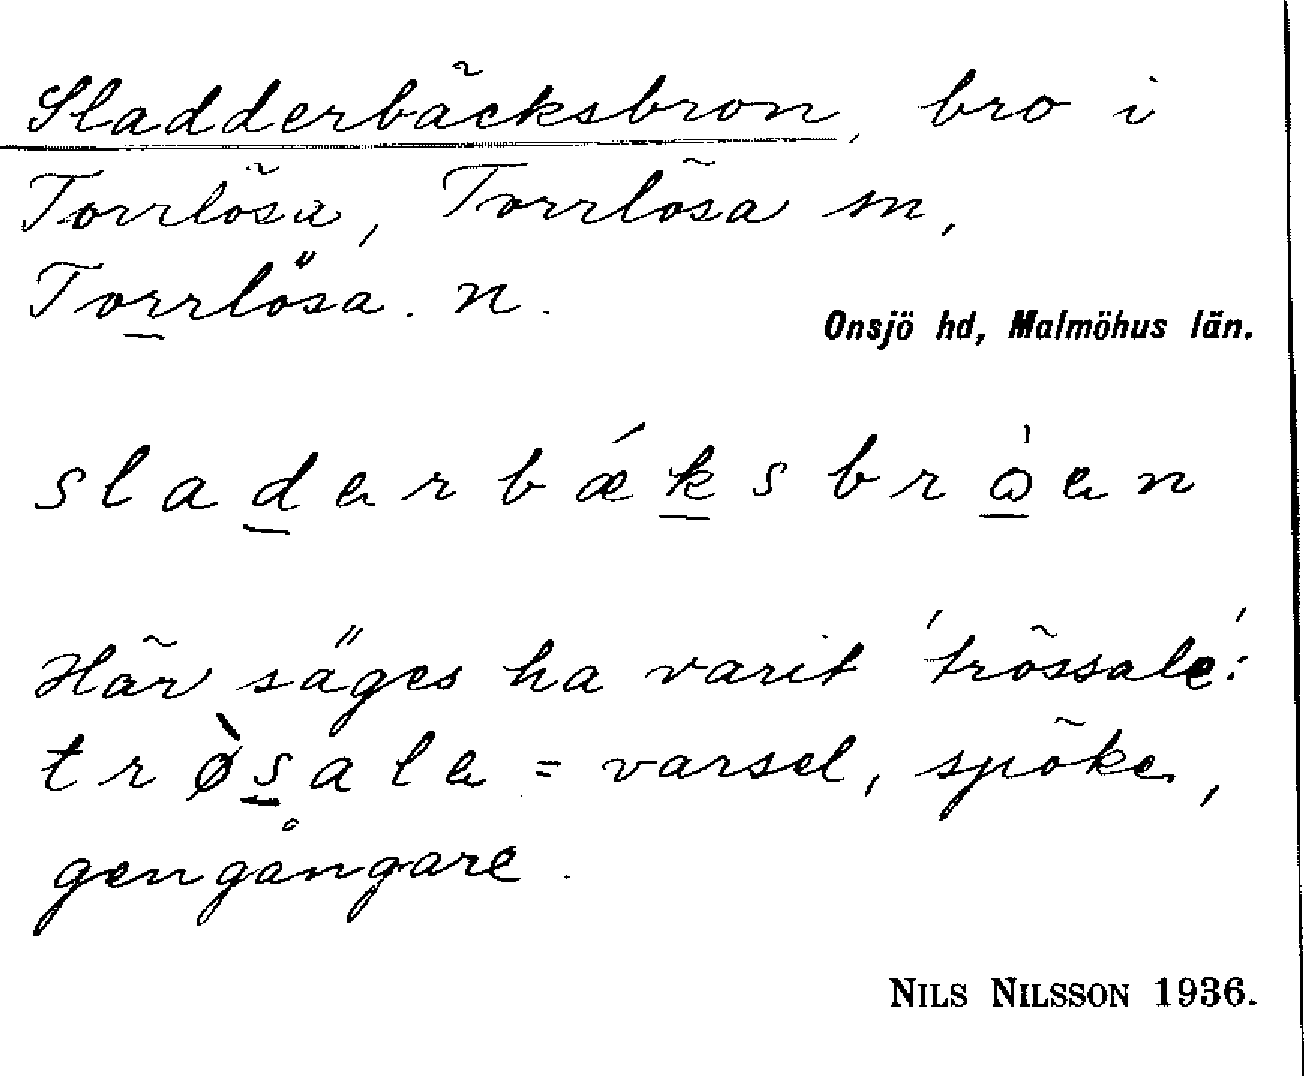 Sladderbäcksbron, bro i
Torrlösa, Torrlösa sn,
Torrlösa. n.
Onsjö hd, Malmöhus län.
sladərbǽksbrὼən
Här säges ha varit 'trössale':
trø̀salə = varsel, spöke,
gengångare.
NILS NILSSON 1936.